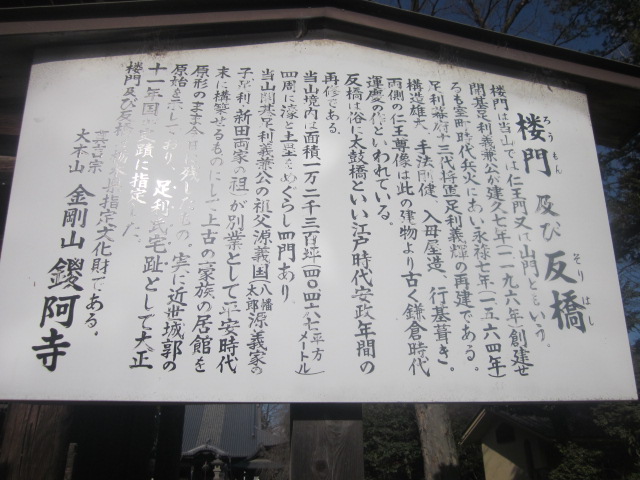 楼門 及び 反橋
ろうもん
そりはし
楼門は当山では仁王門又は山門ともいう。
開基足利義兼公が建久七年(一一九六年)創建せ
るも室町時代兵火にあい永禄七年(一五六四年)
足利幕府十三代将軍足利義輝の再建である。
構造雄大、手法剛健、入母屋造、行基葺き。
両側の仁王尊像は此の建物より古く鎌倉時代
運慶の作といわれている。
反橋は俗に太鼓橋といい江戸時代安政年間の
再修である。
当山境内は面積一万二千三百坪(四〇四六七平方メートル)
四周に濠と土塁をめぐらし四門あり
当山開基足利義兼公の祖父源義国(八幡太郎源義家の
子、足利、新田両家の祖)が別業として平安時代
末に構築せるものにして上古の豪族の居館を
原形のまま今日に残したもの。実に近世城郭の
原始を示しており、足利氏宅趾として大正
十一年国 蹟に指定
楼門及び反橋は栃木県指定文化財である。
真言宗
大本山 金剛山 鑁阿寺